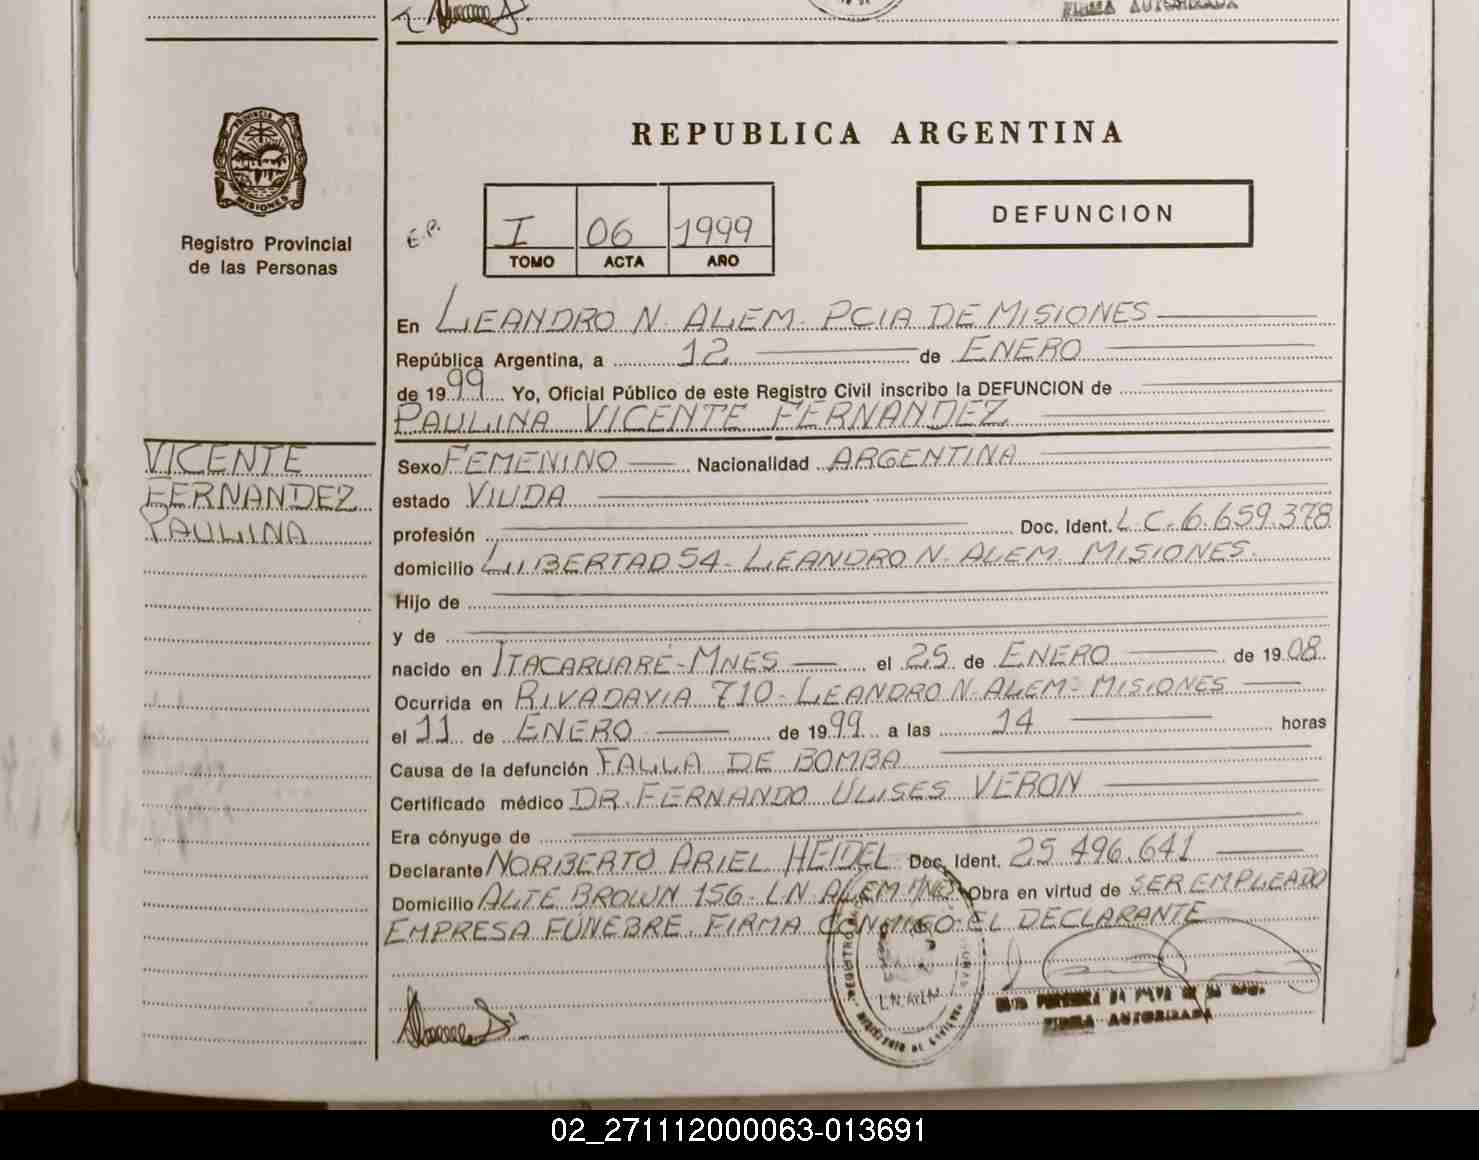 FIRMA AUTORIZADA
PROVINCIA DE
MISIONES
Registro Provincial
de las Personas
REPUBLICA ARGENTINA
E.P.
I 06 1999
TOMO ACTA AÑO
DEFUNCION
En LEANDRO N. ALEM. PCIA DE MISIONES
República Argentina, a 12 de ENERO
de 1999 Yo, Oficial Público de este Registro Civil inscribo la DEFUNCION de
PAULINA VICENTE FERNANDEZ
VICENTE
FERNANDEZ
PAULINA
Sexo FEMENINO Nacionalidad ARGENTINA
estado VIUDA
profesión Doc. Ident. L.C. 6.659.378
domicilio LIBERTAD 54- LEANDRO N. ALEM. MISIONES.
Hijo de
y de
nacido en ITACARUARÉ-MNES el 25 de ENERO de 1908
Ocurrida en RIVADAVIA 710- LEANDRO N. ALEM- MISIONES
el 11 de ENERO de 1999 a las 14 horas
Causa de la defunción FALLA DE BOMBA
Certificado médico DR. FERNANDO ULISES VERON
Era cónyuge de
Declarante NORBERTO ARIEL HEIDEL Doc. Ident. 25.496.641
Domicilio ALTE BROWN 156- LN ALEM MNES Obra en virtud de SER EMPLEADO
EMPRESA FÚNEBRE. FIRMA CONMIGO EL DECLARANTE
L.N. ALEM
FIRMA AUTORIZADA
02_271112000063-013691